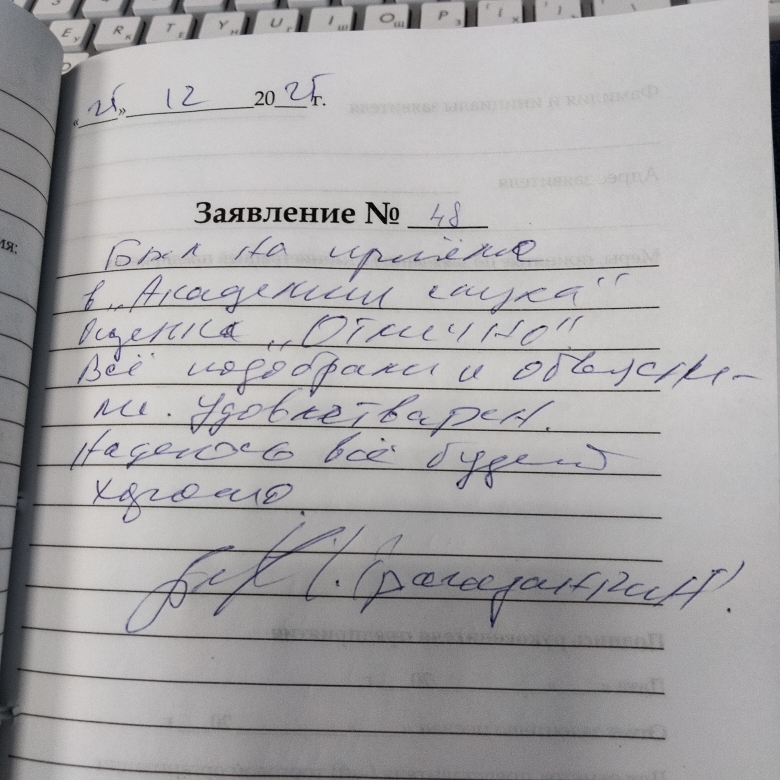 «25» 12 2025 г.
Заявление № 48
Был на приёме
в „Академии слуха“
Оценка „Отлично“
Всё подобрали и объясни-
ли. Удовлетварен.
Надеюсь всё будет
хорошо.